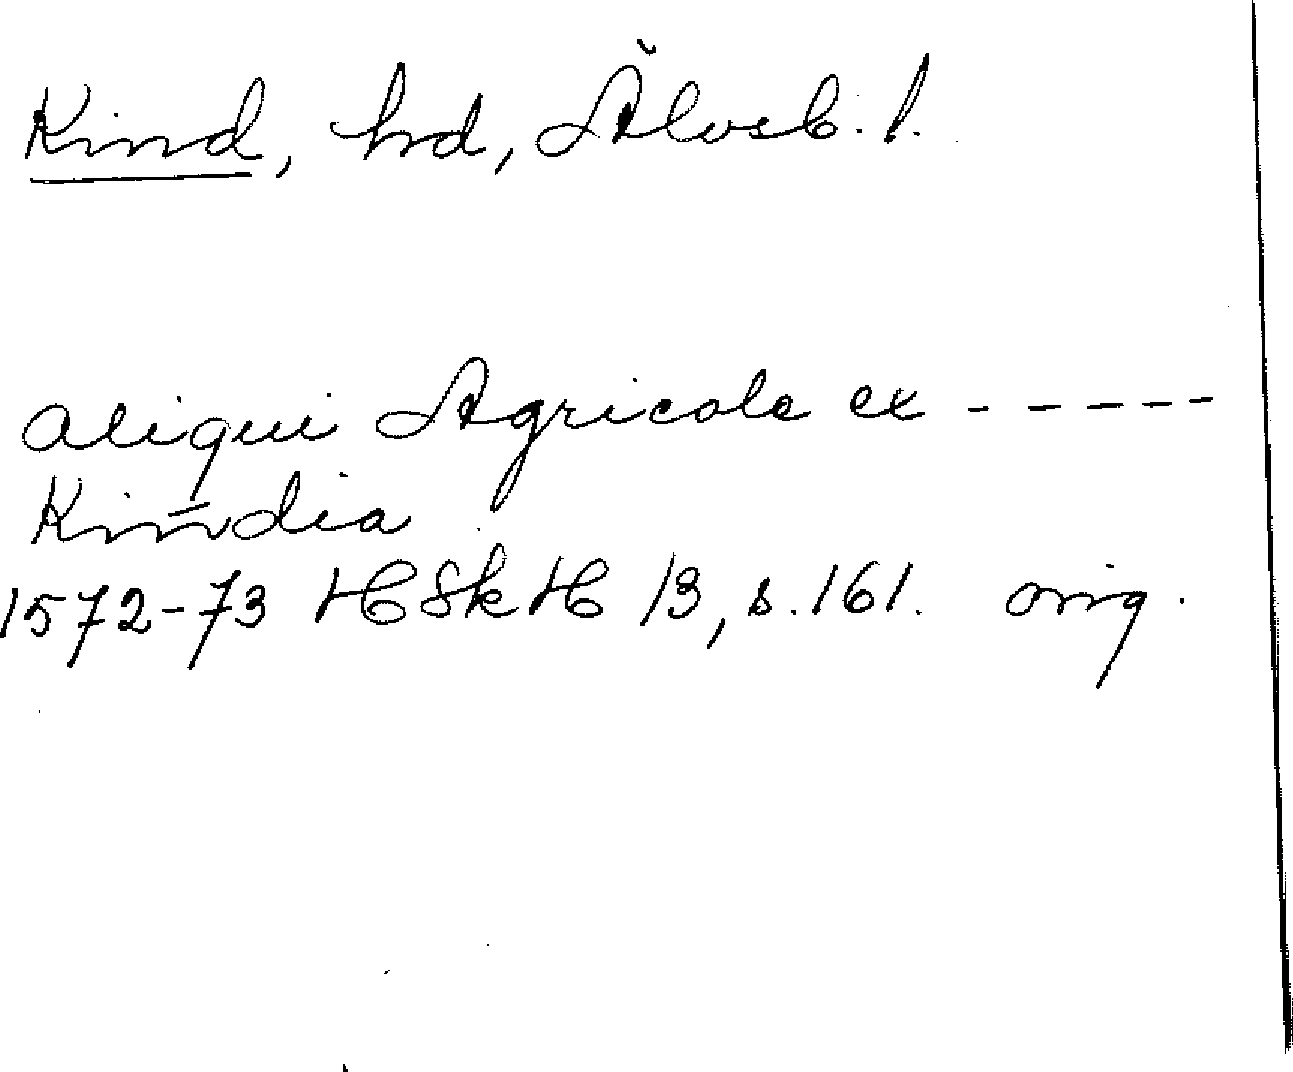 Kind, hd, Älvsb. l.
aliqui Agricole ex - - - - -
Kin̄dia
1572-73 HSkH 13, s. 161. orig.